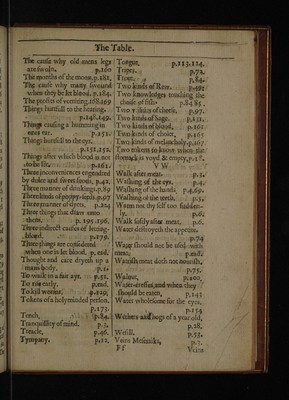 The Table.
The cause why old mens legs
are swoln. p.160
The months of the moon. p.181.
The cause why many swound
when they be let blood. p.184.
The profits of vomiting. 168.169
Things hurtfull to the hearing.
p.148.149.
Things causing a humming in
ones ear. p.151.
Things hurtfull to the eyes.
p.151.152.
Things after which blood is not
to be let. p.161.
Three inconveniences engendred
of dulce and sweet foods. p.42.
Three manner of drinkings. p.89
Three kinds of poppy-seeds. p.97
Three manner of dyets. p.124
Three things that draw unto
them. p.195.196.
Three indirect causes of letting
blood. p.179.
Three things are considered
when one is let blood. p. eod.
Thought and care dryeth up a
mans body. p.1.
To walk in a fair ayr. p.51.
To rise early. p. eod.
To kill worms. p.129.
Tokens of a helyminded person.
p.173.
Tench. p.84.
Tranquillity of mind. p.3.
Treacle. p.96.
Tympany. p.12.
Tongue. p.113.114.
Tripes. p.72.
Trout. p.84.
Two kinds of Rew. p.61
Two knowledges touching the
choise of fish. p.84.85.
Two victims of cheese. p.97.
Two kinds of Sage. p.131.
Two kinds of blood. p.161
Two kinds of choler. p.165
Two kinds of melancholy. p.167
Two tokens to know when the
stomack is voyd & empty. p.18.
V W
Walk after meat. p.5.
Washing of the eyes. p.4.
Washing of the hands. p.4.69.
Washing of the teeth. p.5.
Warm not thy self too suddenly.
p.6.
Walk softly after meat. p.6.
Water destroyeth the appetite.
p.74
Water should not be used with
meat. p. eod.
Water with meat doth not nourish.
p.75.
Walnut. p.100.
Water-cresses, and when they
should be eaten. p.143
Water wholesome for the eyes.
p.154
Wethers and hogs of a year old.
p.28.
Wesill. p.53.
Veins Meseraiks. p.5.
Ff
Veins